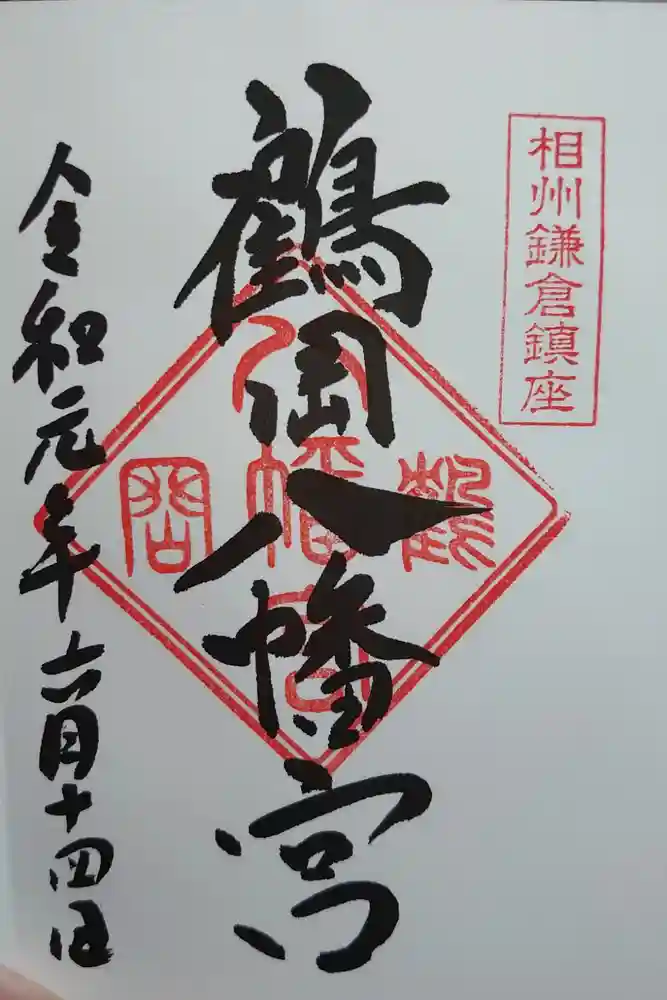 相州鎌倉鎮座
鶴岡八幡宮
鶴岡
八幡宮
令和元年六月十四日